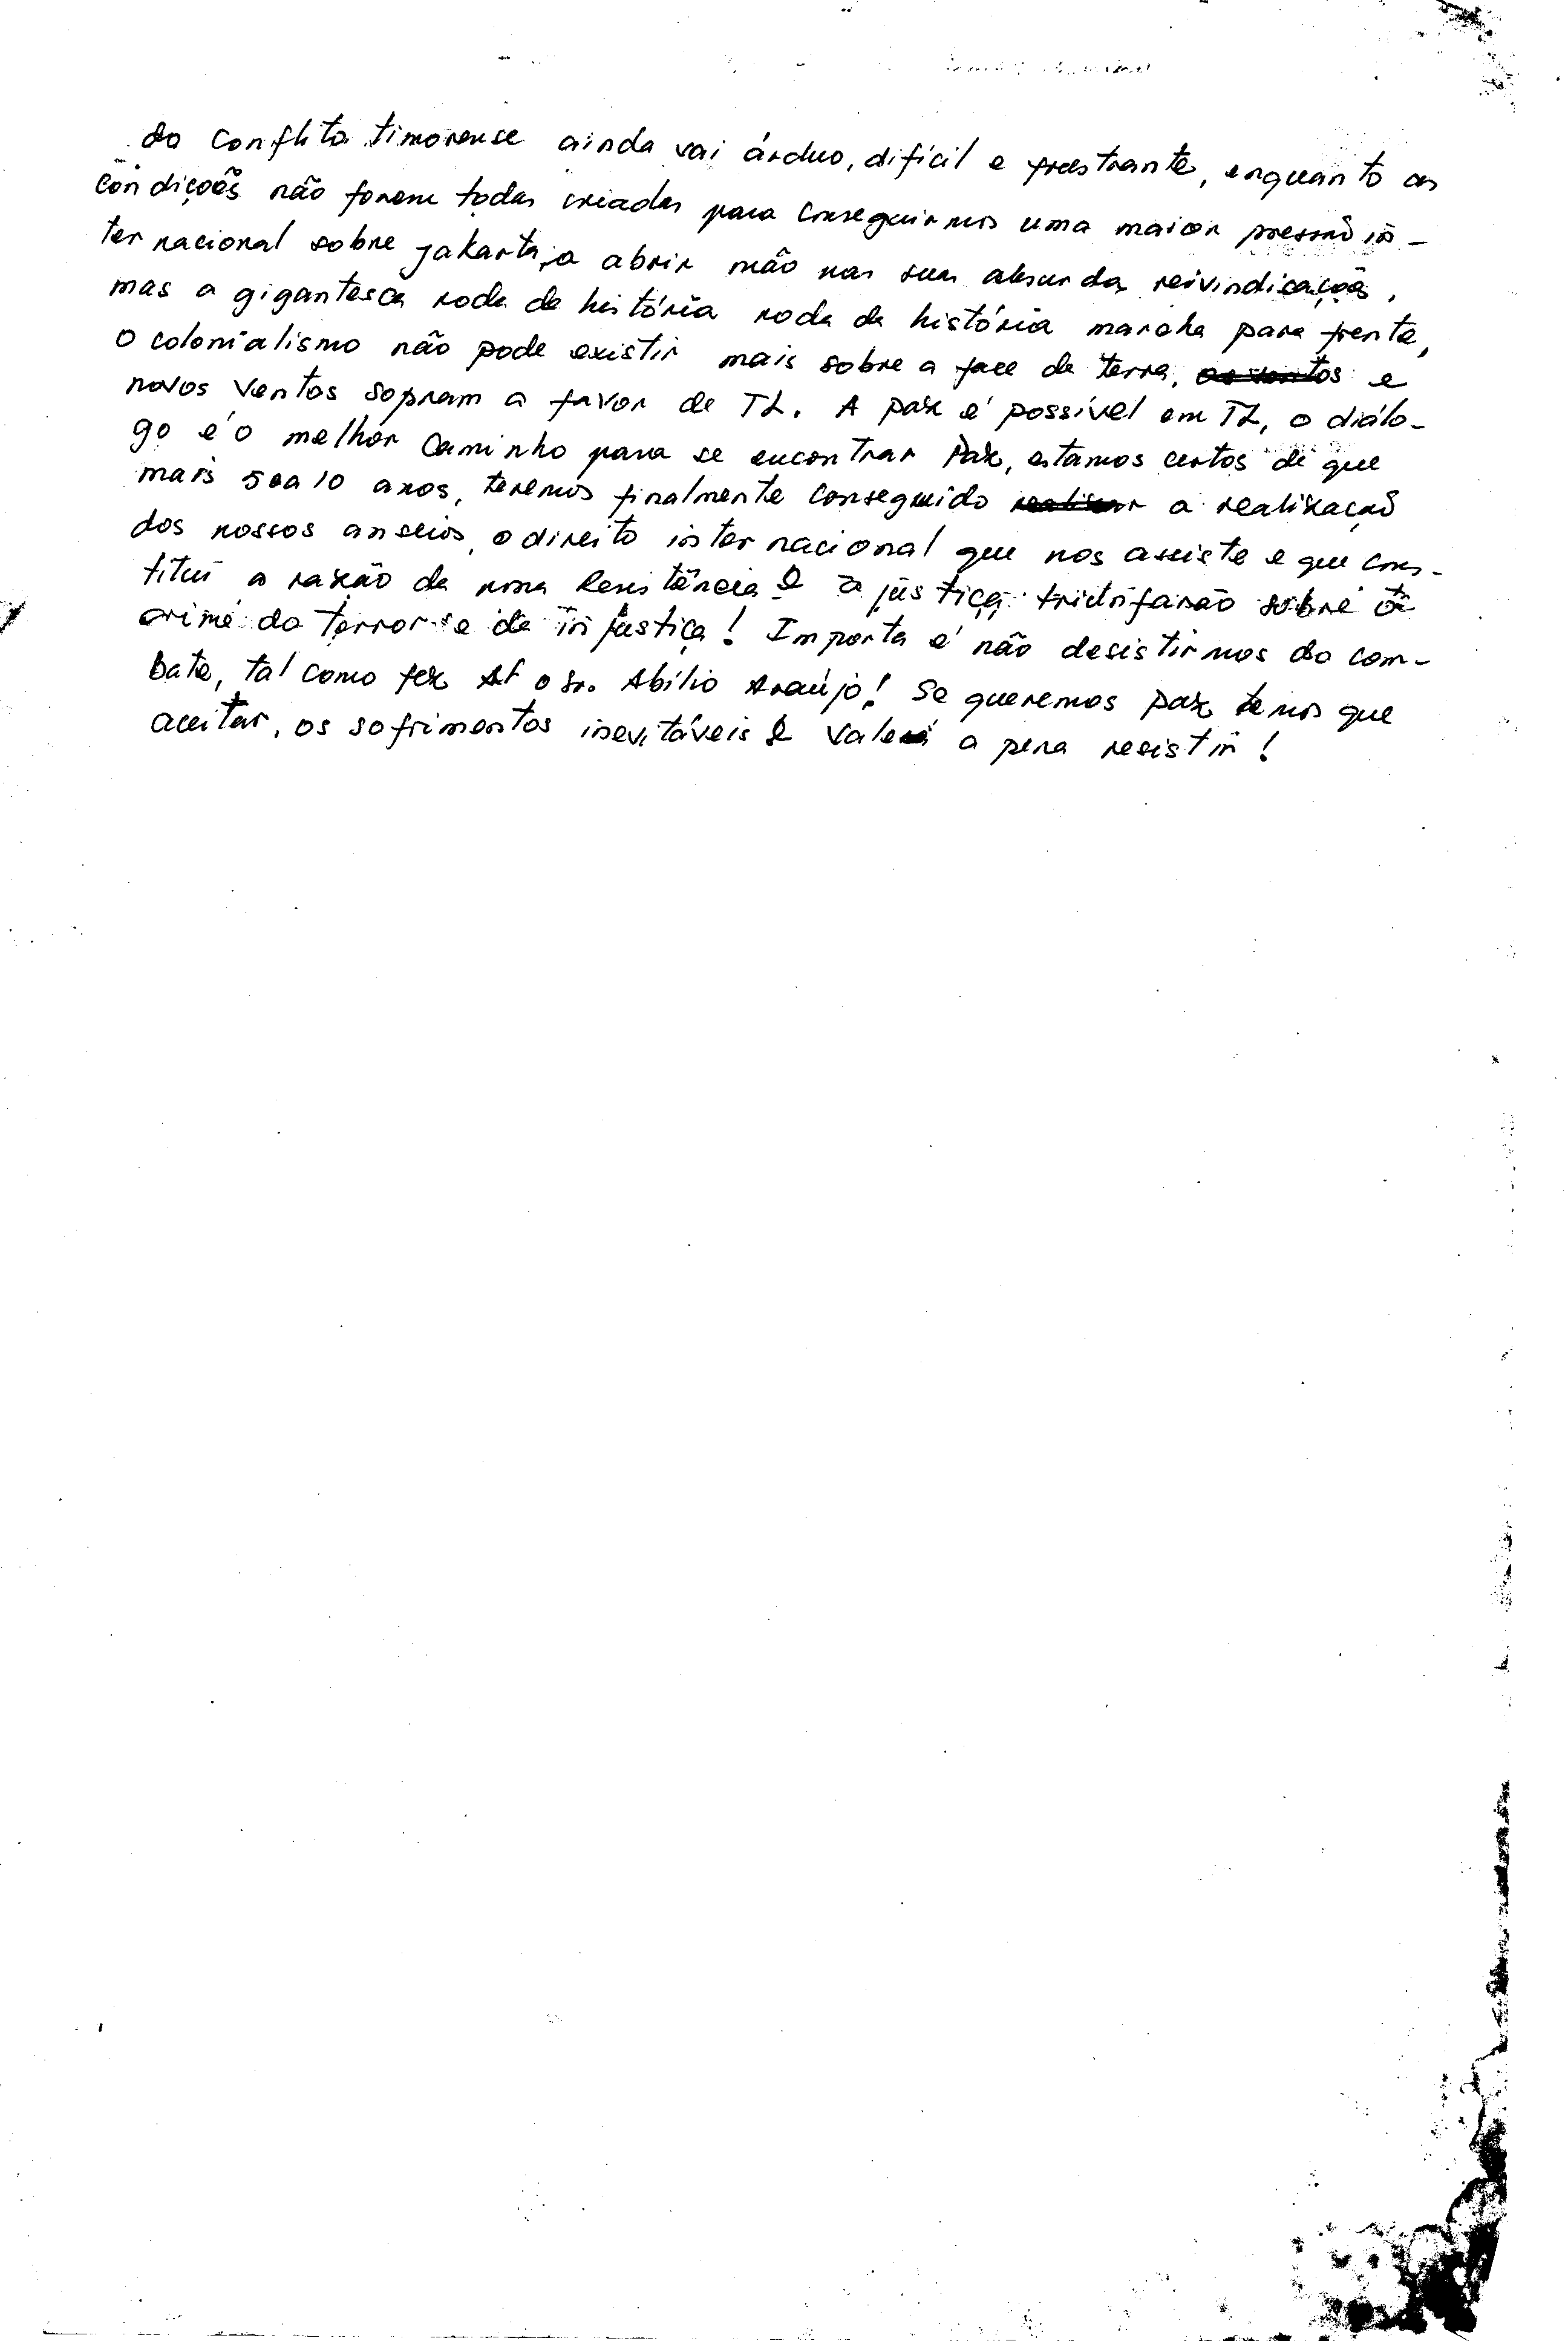 do conflito timorense ainda vai árduo, difícil e frustrante, enquanto as
condições não forem todas criadas para conseguirmos uma maior pressão in-
ternacional sobre Jakarta, a abrir mão nas suas absurda reivindicações,
mas a gigantesca roda da história roda da história marcha para frente,
o colonialismo não pode existir mais sobre a face da terra, e
novos ventos sopram a favor de TL. A paz é possível em TL, o diálo-
go é o melhor caminho para se encontrar Paz, estamos certos de que
mais 5 a 10 anos, teremos finalmente conseguido a realização
dos nossos anseios, o direito internacional que nos assiste e que cons-
titui a razão da nossa Resistência e a justiça triunfarão sobre o
crime do terror e da injustiça! Importa é não desistirmos do com-
bate, tal como fez o Sr. Abílio Araújo! Se queremos paz temos que
aceitar, os sofrimentos inevitáveis e valerá a pena resistir!